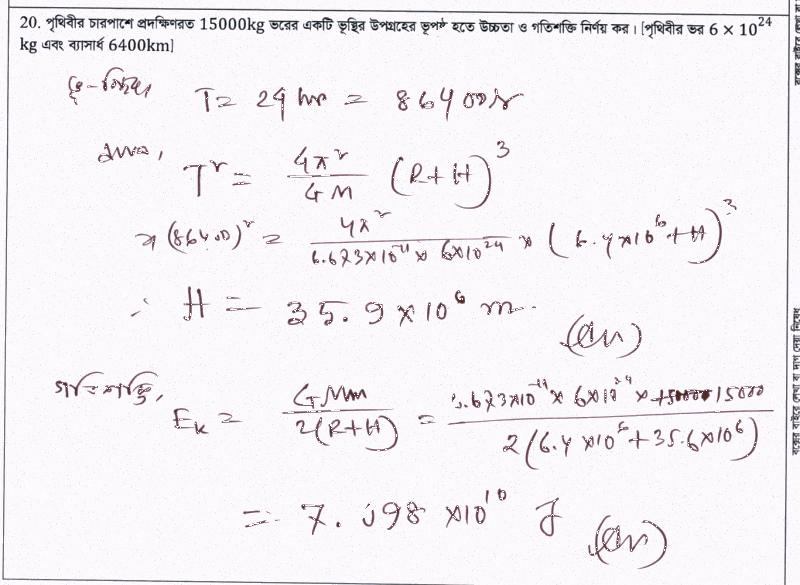 20. পৃথিবীর চারপাশে প্রদক্ষিণরত 15000kg ভরের একটি ভূস্থির উপগ্রহের ভূপৃষ্ঠ হতে উচ্চতা ও গতিশক্তি নির্ণয় কর। [পৃথিবীর ভর 6 × 10²⁴
kg এবং ব্যাসার্ধ 6400km]
T = 24 hr = 86400 s
T² = 4π²/GM (R+H)³
⇒ (86400)² = 4π²/(6.673×10⁻¹¹ × 6×10²⁴) × (6.4×10⁶+H)³
∴ H = 35.9 × 10⁶ m. (Ans)
গতিশক্তি, E_K = GMm/2(R+H) = 6.673×10⁻¹¹ × 6×10²⁴ × 15000/2(6.4×10⁶+35.6×10⁶)
= 7. 98 ×10¹⁰ J (Ans)